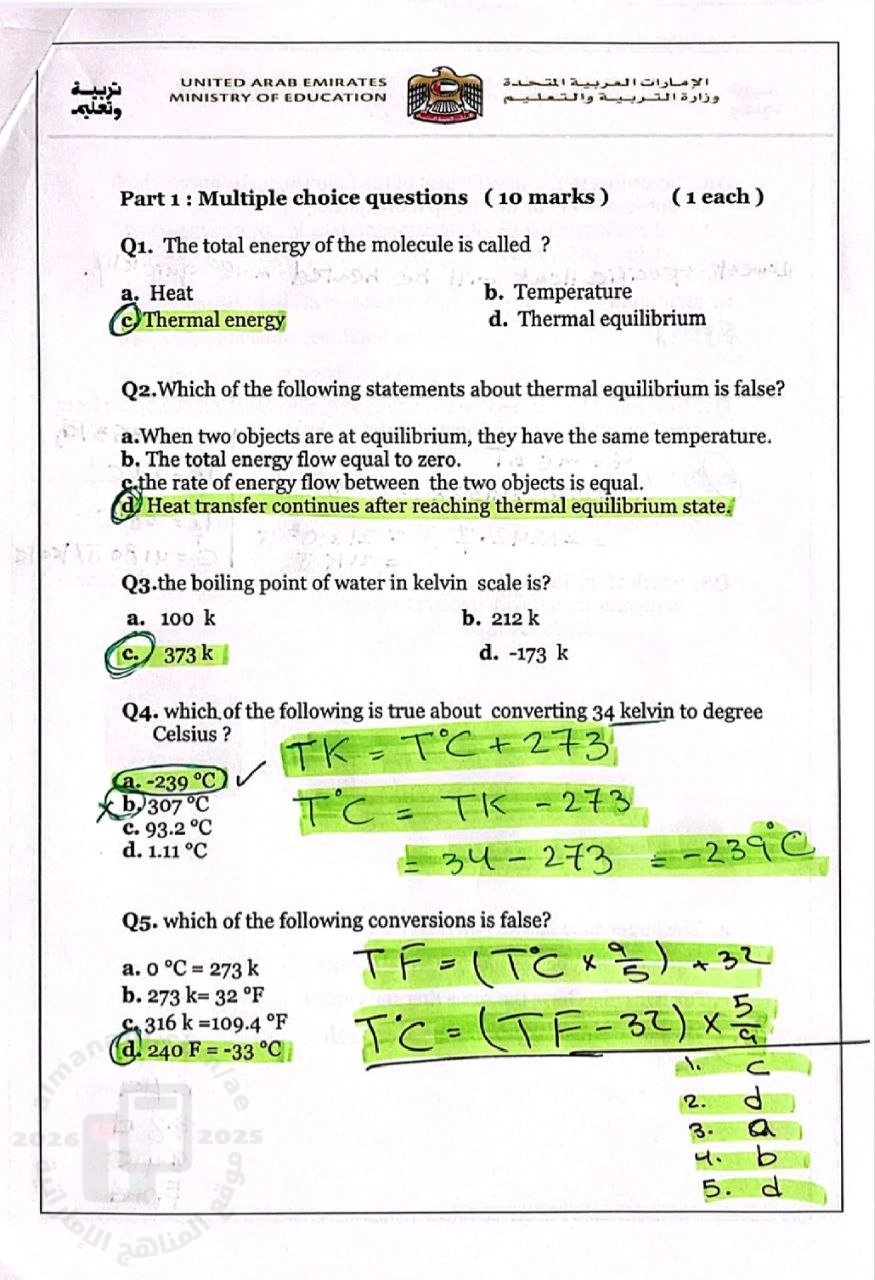 تربية
وتعليم
UNITED ARAB EMIRATES
MINISTRY OF EDUCATION
الإمارات العربية المتحدة
وزارة التربية والتعليم
Part 1 : Multiple choice questions ( 10 marks ) ( 1 each )
Q1. The total energy of the molecule is called ?
a. Heat b. Temperature
c. Thermal energy d. Thermal equilibrium
Q2.Which of the following statements about thermal equilibrium is false?
a.When two objects are at equilibrium, they have the same temperature.
b. The total energy flow equal to zero.
c.the rate of energy flow between the two objects is equal.
d. Heat transfer continues after reaching thermal equilibrium state.
Q3.the boiling point of water in kelvin scale is?
a. 100 k b. 212 k
c. 373 k d. -173 k
Q4. which of the following is true about converting 34 kelvin to degree
Celsius ?
TK = T°C + 273
a. -239 °C ✓
b. 307 °C
T°C = TK - 273
c. 93.2 °C
d. 1.11 °C
= 34 - 273 = -239°C
Q5. which of the following conversions is false?
TF = (T°C × 9/5) + 32
a. 0 °C = 273 k
b. 273 k= 32 °F
c. 316 k =109.4 °F
T°C = (TF - 32) × 5/9
d. 240 F = -33 °C
1. c
2. d
3. a
4. b
5. d
2026 2025
موقع المناهج الإماراتية